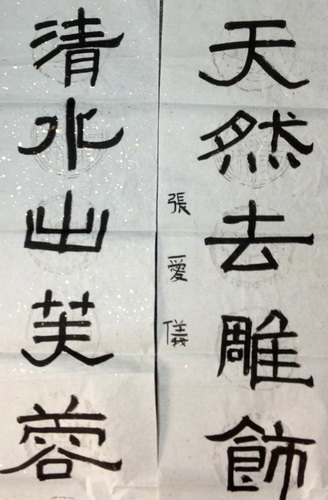 天然去雕飾
清水出芙蓉
張愛儀